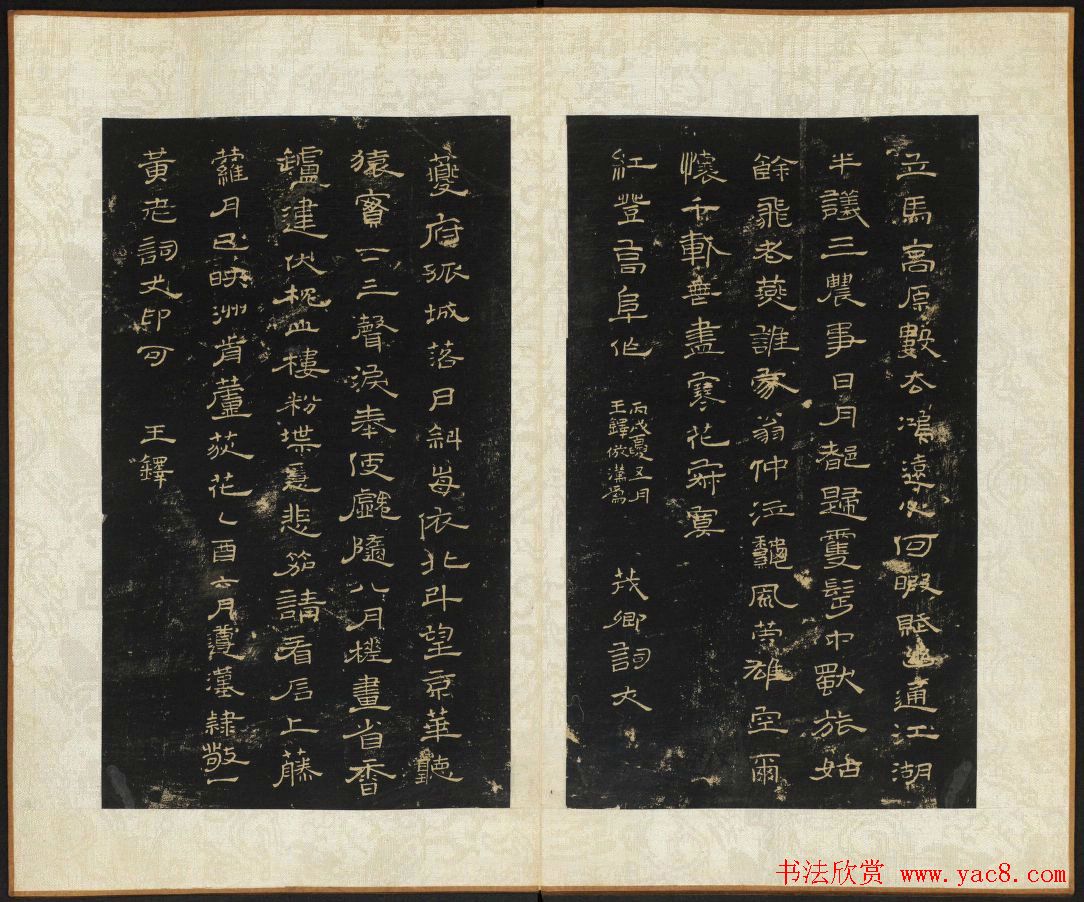 立馬高原數去鴻遠心何暇賦通江湖
半議三農事日月都歸雙髩中歎旅姑
餘飛老燕誰家翁仲泣風英雄空爾
懷千盡寒花寂寞
紅登高阜作
丙戌夏五月
王鐸倣漢為
茂卿詞丈
夔府孤城落日斜每依北斗望京華聽
猿實下三聲淚奉使虛隨八月槎畫省香
鑪違伏枕山樓粉堞隱悲笳請看石上藤
蘿月已映洲前蘆荻花乙酉六月遵漢隸敬一
黃老詞丈印可 王鐸
书法欣赏 www.yac8.com